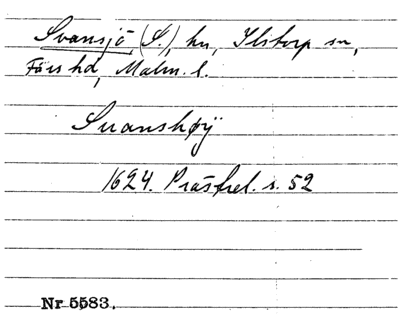 Svansjö (S.), hn, Ilstorp sn,
Färs hd, Malm. l.
Suanshøÿ
1624. Prästrel. s. 52
Nr 5583.